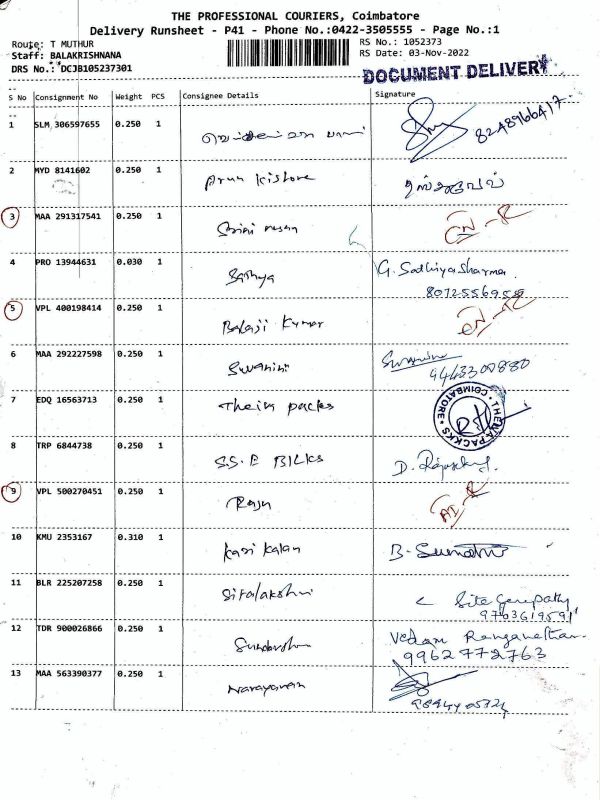 THE PROFESSIONAL COURIERS, Coimbatore
Delivery Runsheet - P41 - Phone No.:0422-3505555 - Page No.:1
Route: T MUTHUR
RS No.: 1052373
Staff: BALAKRISHNANA
RS Date: 03-Nov-2022
DRS No.: DCJB105237301
DOCUMENT DELIVERY
S No Consignment No Weight PCS Consignee Details Signature
1 SLM 306597655 0.250 1
2 MYD 8141602 0.250 1 Arun Kishore
3 MAA 291317541 0.250 1
4 PRO 13944631 0.030 1 Sathya G. Sathiya Sharma
5 VPL 400198414 0.250 1 Balaji Kumar
6 MAA 292227598 0.250 1
7 EDQ 16563713 0.250 1 Their packs THEIA PACKKS COIMBATORE
8 TRP 6844738 0.250 1 S.S.E
9 VPL 500270451 0.250 1 Raju
10 KMU 2353167 0.310 1 Kasi Kalan B. Sumathi
11 BLR 225207258 0.250 1 Sitalakshmi
12 TDR 900026866 0.250 1 Vedam Ranganathan
9962772763
13 MAA 563390377 0.250 1 Narayanan